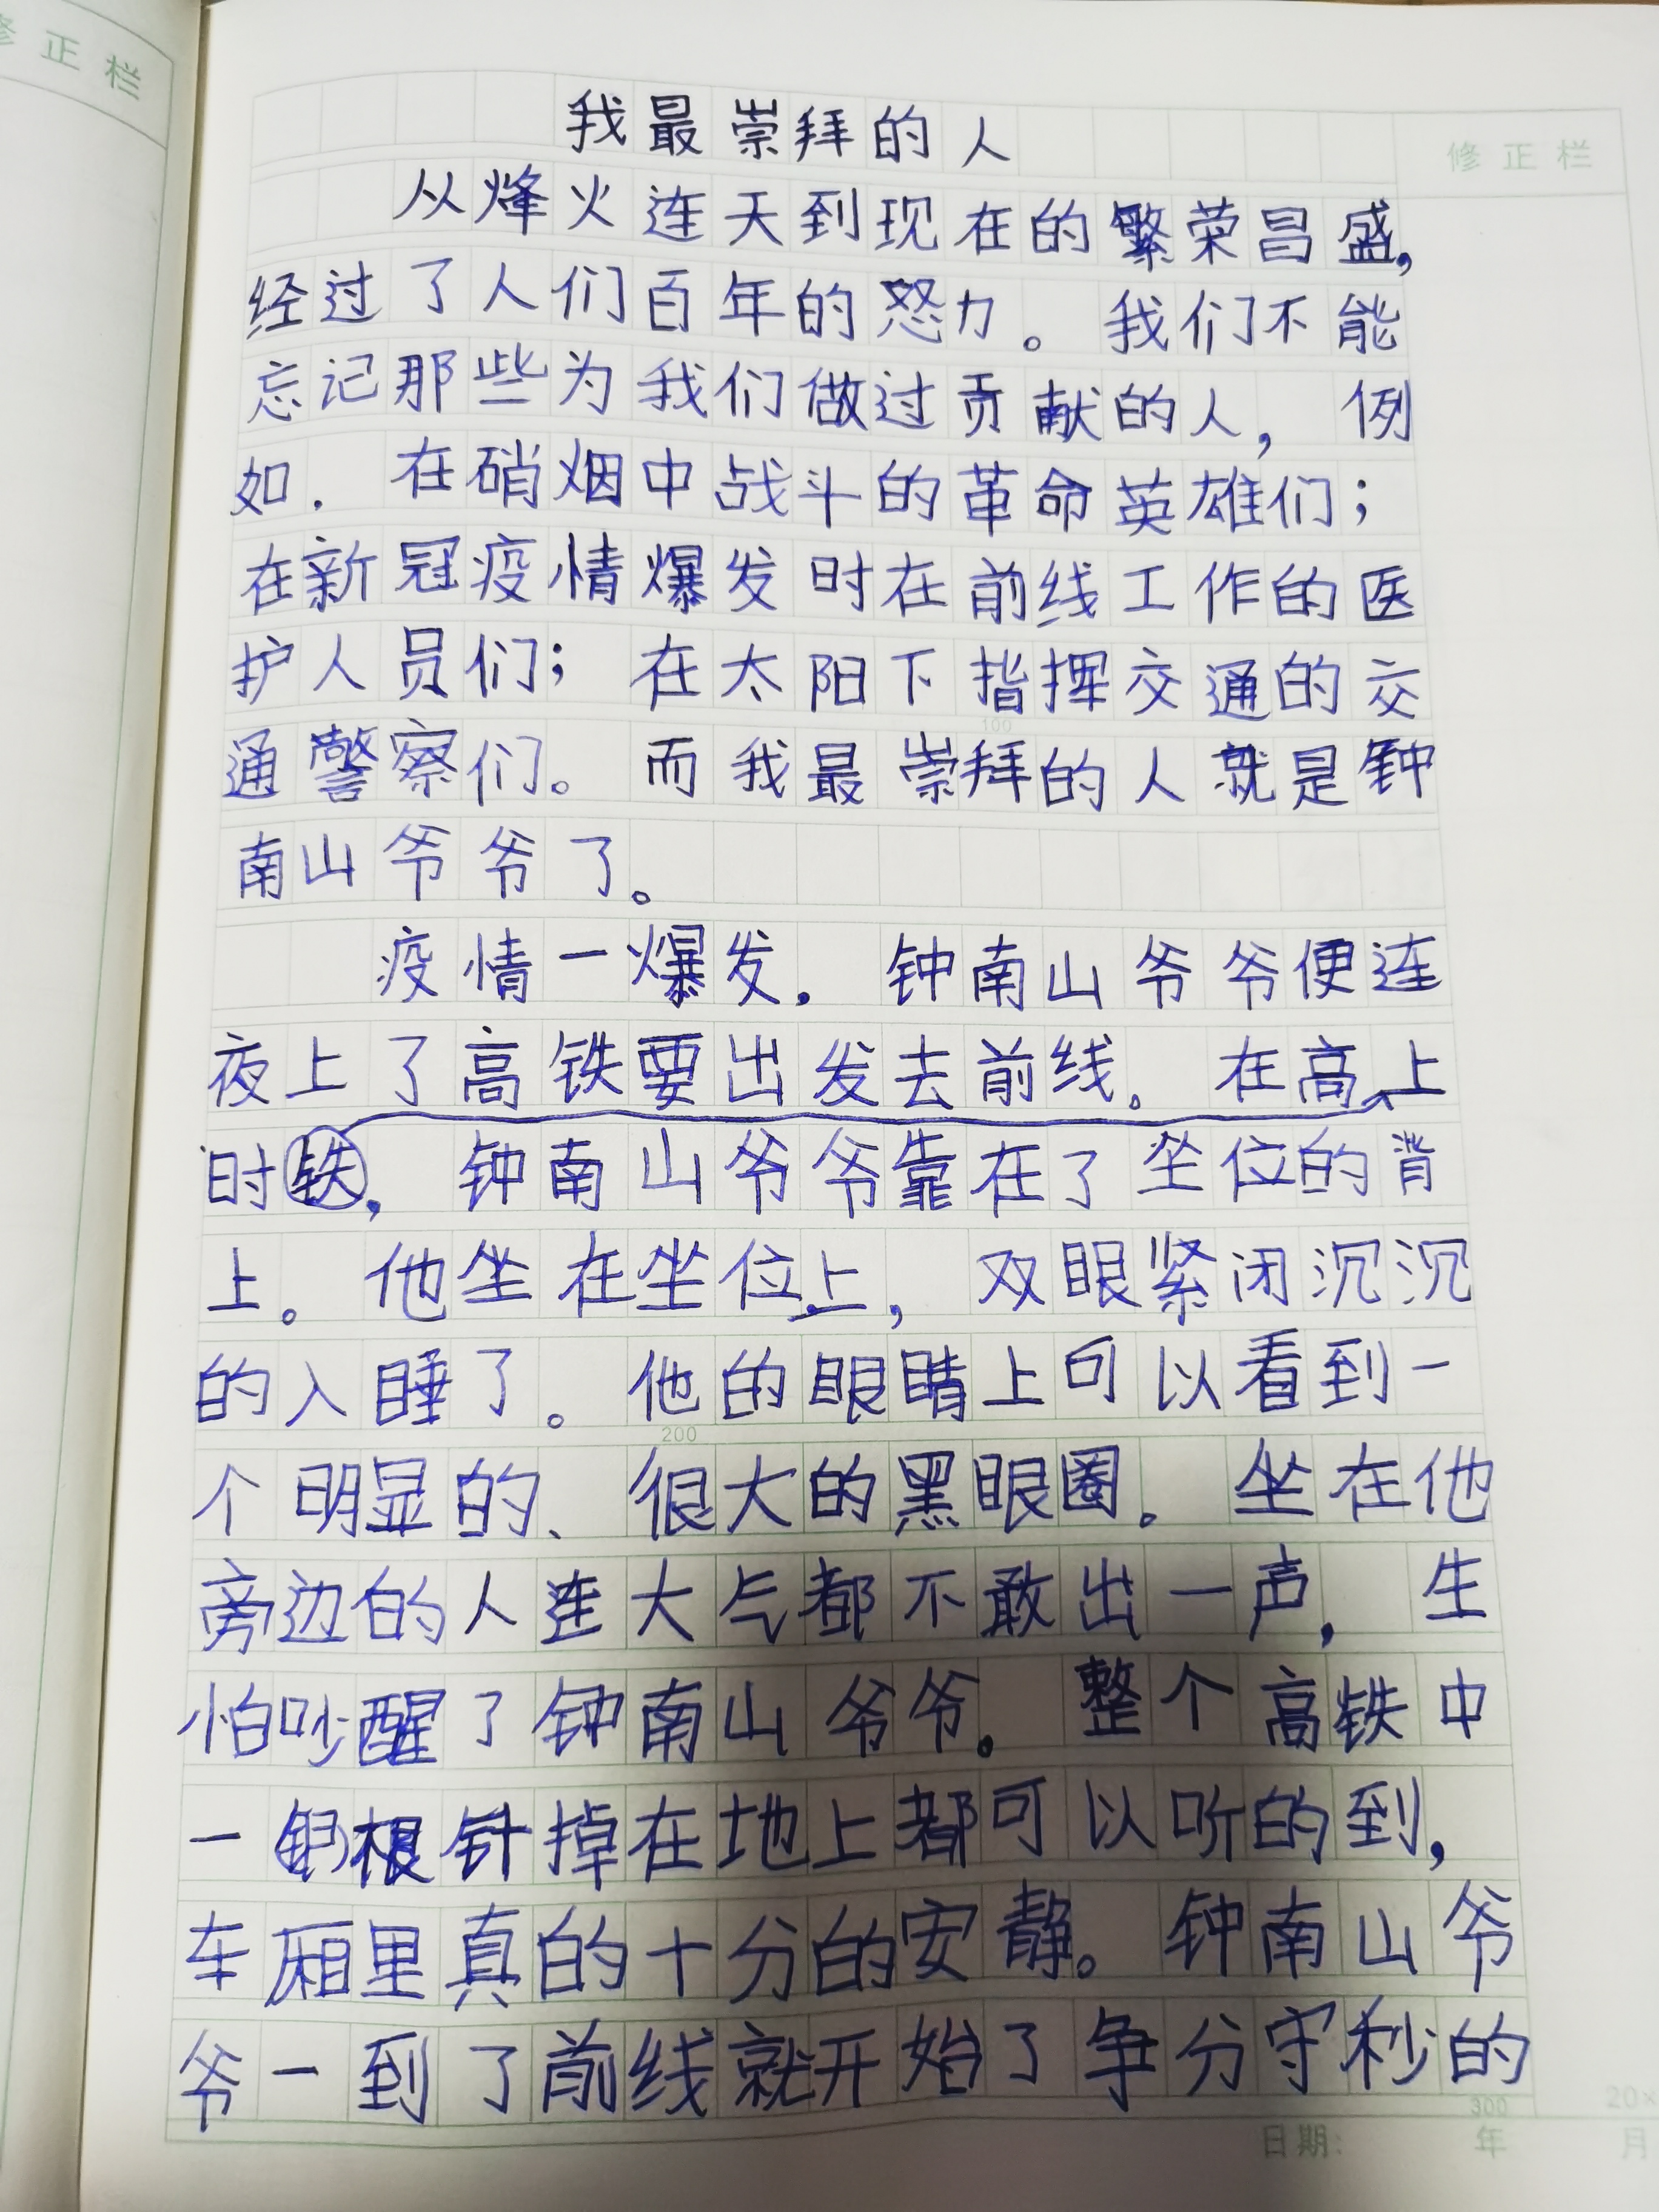 修正栏
我最崇拜的人
修正栏
从烽火连天到现在的繁荣昌盛，
经过了人们百年的怒力。我们不能
忘记那些为我们做过贡献的人，例
如．在硝烟中战斗的革命英雄们；
在新冠疫情爆发时在前线工作的医
护人员们；在太阳下指挥交通的交
100
通警察们。而我最崇拜的人就是钟
南山爷爷了。
疫情一爆发．钟南山爷爷便连
夜上了高铁要出发去前线。在高上
时铁，钟南山爷爷靠在了坐位的背
上。他坐在坐位上，双眼紧闭沉沉
的入睡了。他的眼睛上可以看到一
200
个明显的、很大的黑眼圈。坐在他
旁边的人连大气都不敢出一声，生
怕吵醒了钟南山爷爷。整个高铁中
一根针掉在地上都可以听的到，
车厢里真的十分的安静。钟南山爷
爷一到了前线就开始了争分守秒的
300
20×
日期： 年 月